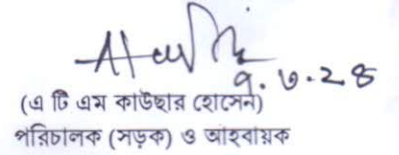 ৭.৩.২৪
(এ টি এম কাউছার হোসেন)
পরিচালক (সড়ক) ও আহবায়ক